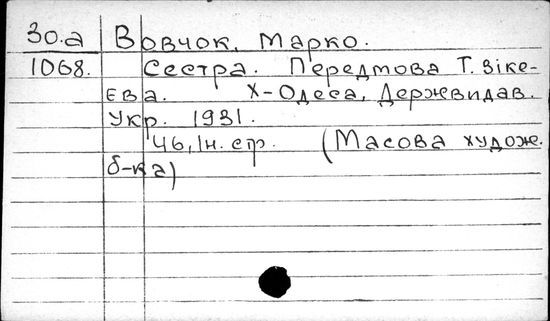 30.а Вовчок, Марко.
1068. Сестра. Передмова Т. Зіке-
єва. Х-Одеса, Держвидав.
Укр. 1931.
46, 1н. стр. (Масова худож.
б-ка)